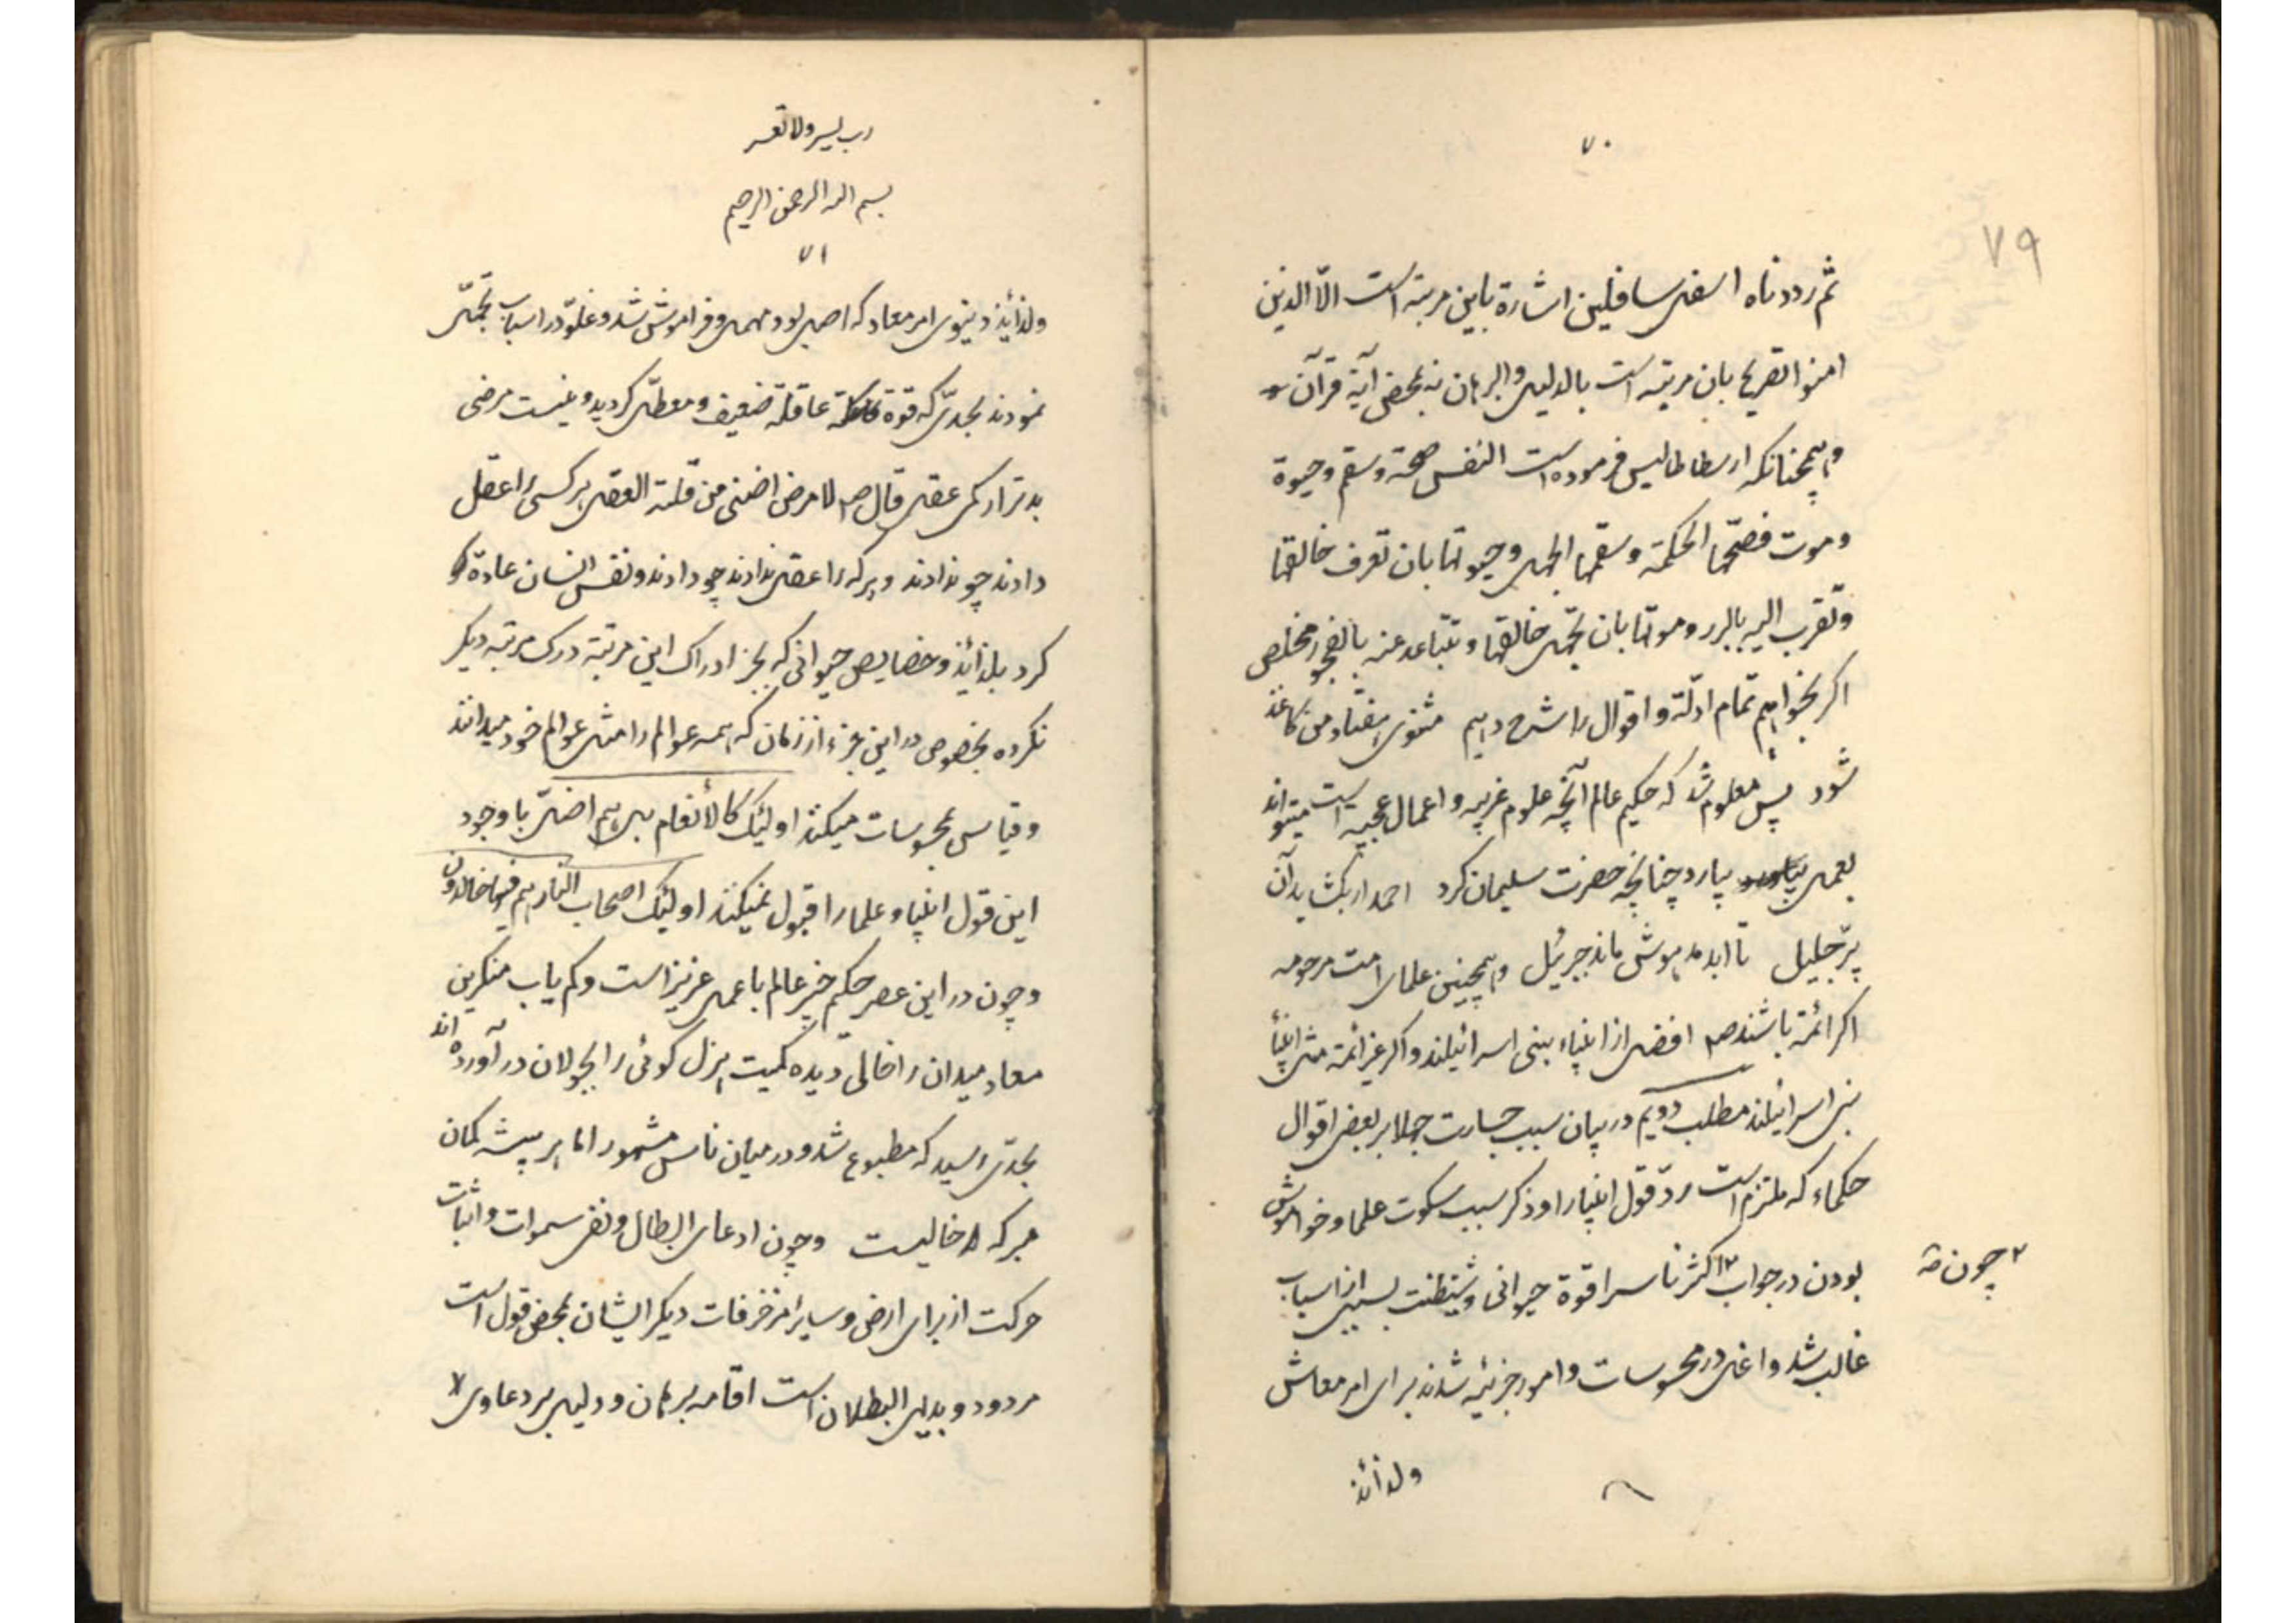 ۷۰
۷۹
ثم رددناه اسفل سافلین اشارة باین مرتبه است الّا الذین
امنوا تصریح بان مرتبه است بالدلیل و البرهان نه بمحض آیة قرآن
و همچنانکه ارسطاطالیس فرموده است النفس صحة و سقم و حیوة
و موت فصحّتها الحکمة و سقمها الجهل و حیوتها بان تعرف خالقها
و تقرب الیه بالبرر و موتها بان تجهل خالقها و تتباعد عنه بالفجور مخلص
اکر بخواهم تمام ادلّة و اقوال را شرح دهیم مثنوی هفتاد من کاغذ
شود پس معلوم شد که حکیم عالم آنچه علوم غریبه و اعمال عجیبه است میتواند
بعمل بیارد چنانچه حضرت سلیمان کرد احمد ار بکشاید آن
پرّ جلیل تا ابد مدهوش ماند جبرئیل و همچنین علمای امت مرحومه
اکر ائمّة باشند ص افضل از انبیاء بنی اسرائیلند و اکر غیر ائمة مثل انبیأ
بنی اسرائیلند مطلب دویم در بیان سبب جسارت جهلا بر بعض اقوال
حکماء که ملتزم است ردّ قول انبیا را و ذکر سبب سکوت علما و خواموش
بودن در جواب ۲ اکثر ناس را قوة حیوانی و شیطنت بسببی از اسباب
۲ چون صح
غالب شد و اغلب در محسوسات و امور جزئیه شدند برای امر معاش
ولذائذ
رب یسر ولا تعسر
بسم الله الرحمن الرحیم
۷۱
ولذائذ دنیوی امر معاد که اصل بود مهمل و فراموش شد و غلوّ در اسباب تجمّل
نمودند بحدّی که قوة عاقلة ضعیف و معطّل کردید و نیست مرضی
بدتر از کمی عقل قال ص لا مرض اضنی من قلة العقل هر کسی را عقل
دادند چو ندادند و هر که را عقل ندادند چو دادند و نفس انسان عادة
کرد بلذائذ و خصایص حیوانی که بجز ادراک این مرتبة درک مرتبه دیکر
نکرده بخصوص در این جزء از زمان که همه عوالم را مثل عوالم خود میدانند
و قیاس بمحسوسات میکنند اولئک کالأنعام بل هم اضلّ با وجود
این قول انبیا و علما را قبول نمیکنند اولئک اصحاب النار هم فیها خالدون
و چون در این عصر حکیم خبیر عالم با عمل عزیز است و کم یاب منکرین
معاد میدان را خالی دیده کمیت هزل کوئی را بجولان در آورده اند
بحدّی رسید که مطبوع شد و در میان ناس مشهور اما هر بیشه کمان
مبر که خالیست و چون ادعای ابطال و نفی سموات و اثبات
حرکت از برای ارض و سایر مزخرفات دیکر ایشان بمحض قول است
مردود و بدیهی البطلان است اقامه برهان و دلیل بر دعاوی